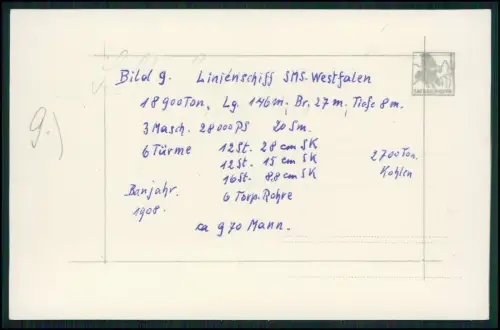 Bild 9. Linienschiff SMS-Westfalen
18900 Ton, Lg. 146m, Br. 27m, Tiefe 8m.
3 Masch. 28000 PS 20 Sm.
6 Türme 12 St. 28 cm SK
12 St. 15 cm SK
16 St. 8,8 cm SK
6 Torp. Rohre
2700 Ton.
Kohlen
9.)
Baujahr.
1908.
ca 970 Mann.